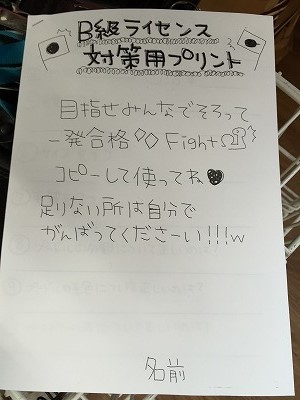 B級ライセンス
対策用プリント
目指せみんなでそろって
一発合格◇◇Fight
コピーして使ってね♥
足りない所は自分で
がんばってくださーい!!!w
名前